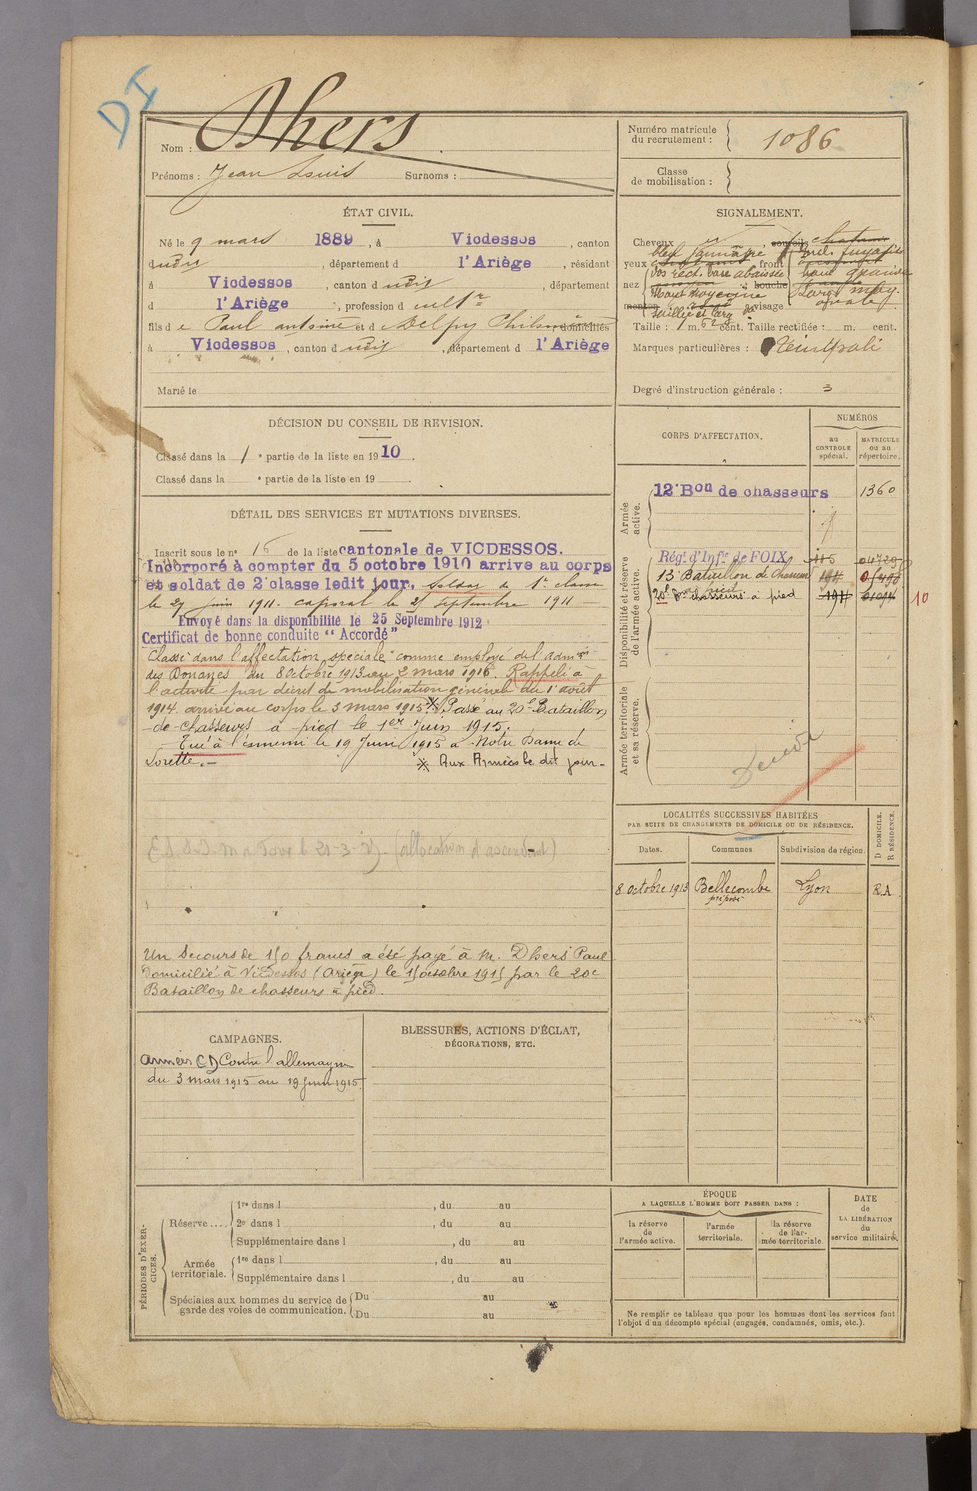 DI
Nom : Dhers
Prénoms : Jean Louis Surnoms :
Numéro matricule du recrutement : 1086
Classe de mobilisation :
ÉTAT CIVIL.
Né le 9 mars 1889, à Vicdessos, canton
dudit, département d l'Ariège, résidant
à Vicdessos, canton dudit, département
d l'Ariège, profession d cultr
fils de Paul antoine et d domiciliés
à Vicdessos, canton dudit, département d l'Ariège
Marié le
SIGNALEMENT.
Cheveux
yeux front
nez bouche
menton visage
Taille : 1 m. cent. Taille rectifiée : m. cent.
Marques particulières :
Degré d'instruction générale : 3
DÉCISION DU CONSEIL DE REVISION.
Classé dans la 1e partie de la liste en 1910.
Classé dans la e partie de la liste en 19
DÉTAIL DES SERVICES ET MUTATIONS DIVERSES.
Inscrit sous le n° 16 de la liste cantonale de VICDESSOS.
Incorporé à compter du 5 octobre 1910 arrive au corps
et soldat de 2e classe ledit jour. Soldat de 1e classe
le 29 juin 1911. caporal le 25 septembre 1911
Envoyé dans la disponibilité le 25 Septembre 1912
Certificat de bonne conduite "Accordé"
Classé dans l'affectation spéciale comme employé del'admon
des Douanes du 8 Octobre 1913 au 2 mars 1915. Rappelé à
l'activité par décret de mobilisation générale du 1er août
1914. arrivé au corps le 3 mars 1915. Passé au 20e Bataillon
de chasseurs à pied le 1er Juin 1915.
Tué à l'ennemi le 19 Juin 1915 à Notre Dame de
Lorette.
Aux Armées le dit jour
(allocation d'ascendant)
Un Secours de 150 francs a été payé à M. Dhers Paul
Domicilié à Vicdessos (Ariège) le 15 octobre 1915 par le 20e
Bataillon de chasseurs à pied.
CORPS D'AFFECTATION.
NUMÉROS
au CONTROLE spécial.
MATRICULE ou au répertoire.
Armée active.
12e Bon de chasseurs 1360
Disponibilité et réserve de l'armée active.
Régt d'Infie de FOIX
13e Bataillon de Chasseurs
20e Bon chasseurs à pied
10
Armée territoriale et sa réserve.
LOCALITÉS SUCCESSIVES HABITÉES
PAR SUITE DE CHANGEMENTS DE DOMICILE OU DE RÉSIDENCE.
Dates.
Communes
Subdivision de région.
D DOMICILE.
R RÉSIDENCE.
8 Octobre 1913 Bellecombe Lyon R.A
préposé
CAMPAGNES.
Contre l'allemagne
du 3 mars 1915 au 19 juin 1915
BLESSURES, ACTIONS D'ÉCLAT,
DÉCORATIONS, ETC.
PÉRIODES D'EXERCICES.
Réserve....
1re dans l , du au
2e dans l , du au
Supplémentaire dans l , du au
Armée territoriale.
1re dans l , du au
Supplémentaire dans l , du au
Spéciales aux hommes du service de garde des voies de communication.
Du au
Du au
ÉPOQUE
A LAQUELLE L'HOMME DOIT PASSER DANS :
la réserve de l'armée active.
l'armée territoriale.
la réserve de l'armée territoriale.
DATE de LA LIBÉRATION du service militaire.
Ne remplir ce tableau que pour les hommes dont les services font
l'objet d'un décompte spécial (engagés, condamnés, omis, etc.).